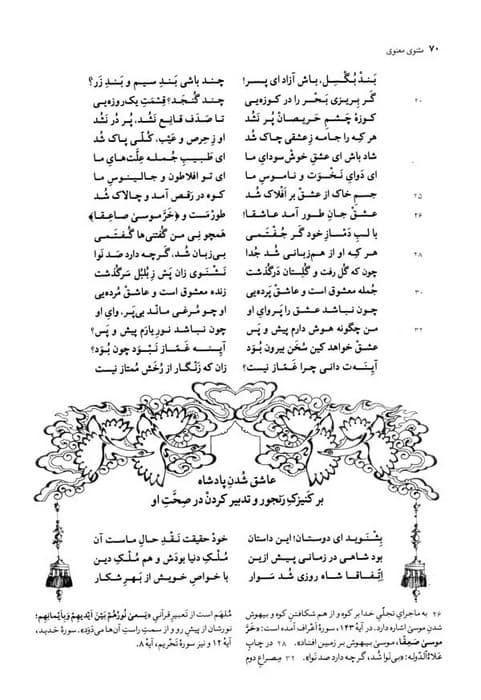 ۷۰ مثنوی معنوی
بَندْ بُگْسِل، باش آزاد ای پسر! چند باشی بَندِ سیم و بَندِ زَر؟
۲۰ گَر بریزی بَحْر را در کوزه‌یی چند گُنْجَد؟ قِسْمَتِ یک‌روزه‌یی
کوزهٔ چَشمِ حَریصان پُر نَشُد تا صَدَف قانِع نَشُد، پُر دُر نَشُد
هر که را جامه زِ عشقی چاک شُد او زِ حِرص و عَیْب، کُلّی پاک شُد
شاد باش ای عشقِ خوش‌سودایِ ما ای طَبیبِ جُمله عِلَّت‌هایِ ما
ای دَوایِ نَخْوَت و ناموسِ ما ای تو اَفلاطون و جالینوسِ ما
۲۵ جسمِ خاک از عشق بر اَفْلاک شُد کوه در رَقص آمد و چالاک شُد
۲۶ عشقْ جانِ طور آمد عاشقا! طورْ مَست و ﴿خَرَّ موسیٰ صاعِقا﴾
با لبِ دَمْسازِ خود گَر جُفْتَمی همچو نِی من گُفتنی‌ها گُفْتَمی
۲۸ هر که او از هم‌زبانی شُد جُدا بی‌زبان شُد، گَرچه دارد صَد نَوا
چون که گُل رفت و گُلِسْتان دَرگُذشت نَشْنَوی زان پَس زِ بُلبُل سَرگُذشت
۳۰ جُمله معشوق است و عاشق پَرده‌یی زنده معشوق است و عاشق مُرده‌یی
چون نباشد عشق را پَروایِ او او چو مُرغی مانْد بی‌پَر، وایِ او
۳۲ من چگونه هوش دارم پیش و پَس؟ چون نباشد نورِ یارَم پیش و پَس؟
عشق خواهد کین سُخَن بیرون بُوَد آینه غَمّاز نَبْوَد چون بُوَد؟
آینه‌ت دانی چرا غَمّاز نیست؟ زان که زَنْگار از رُخَش مُمتاز نیست
عاشق شُدنِ پادشاه
بر کَنیزکِ رَنجور و تدبیر کردن در صِحَّتِ او
بِشْنَوید ای دوستان! این داستان خود حقیقت نَقدِ حالِ ماست آن
بود شاهی در زمانی پیش ازین مُلْکِ دنیا بودَش و هم مُلْکِ دین
اِتِّفاقا شاه روزی شُد سَوار با خَواصِ خویش از بَهرِ شکار
۲۶ به ماجرای تجلّیِ خدا بر کوه و از هم شکافتنِ کوه و بیهوش
شدنِ موسیٰ اشاره دارد. در آیهٔ ۱۴۳، سورهٔ اَعراف آمده است: «خَرَّ
موسیٰ صَعِقا، موسیٰ بیهوش بر زمین افتاد». ۲۸ در چاپِ
عَلاءُالدّوله: «بی‌نوا شُد، گرچه دارد صَد نَوا». ۳۲ مِصراعِ دوم
مُلهَم است از تعبیرِ قرآنیِ «یَسعیٰ نُورُهُمْ بَیْنَ أیْدیهِمْ وَبِأیْمانِهِم؛
نورشان از پیشِ رو و از سمتِ راستِ آن‌ها می‌دَوَد». سورهٔ حَدید،
آیهٔ ۱۲ و نیز سورهٔ تَحْریم، آیهٔ ۸.